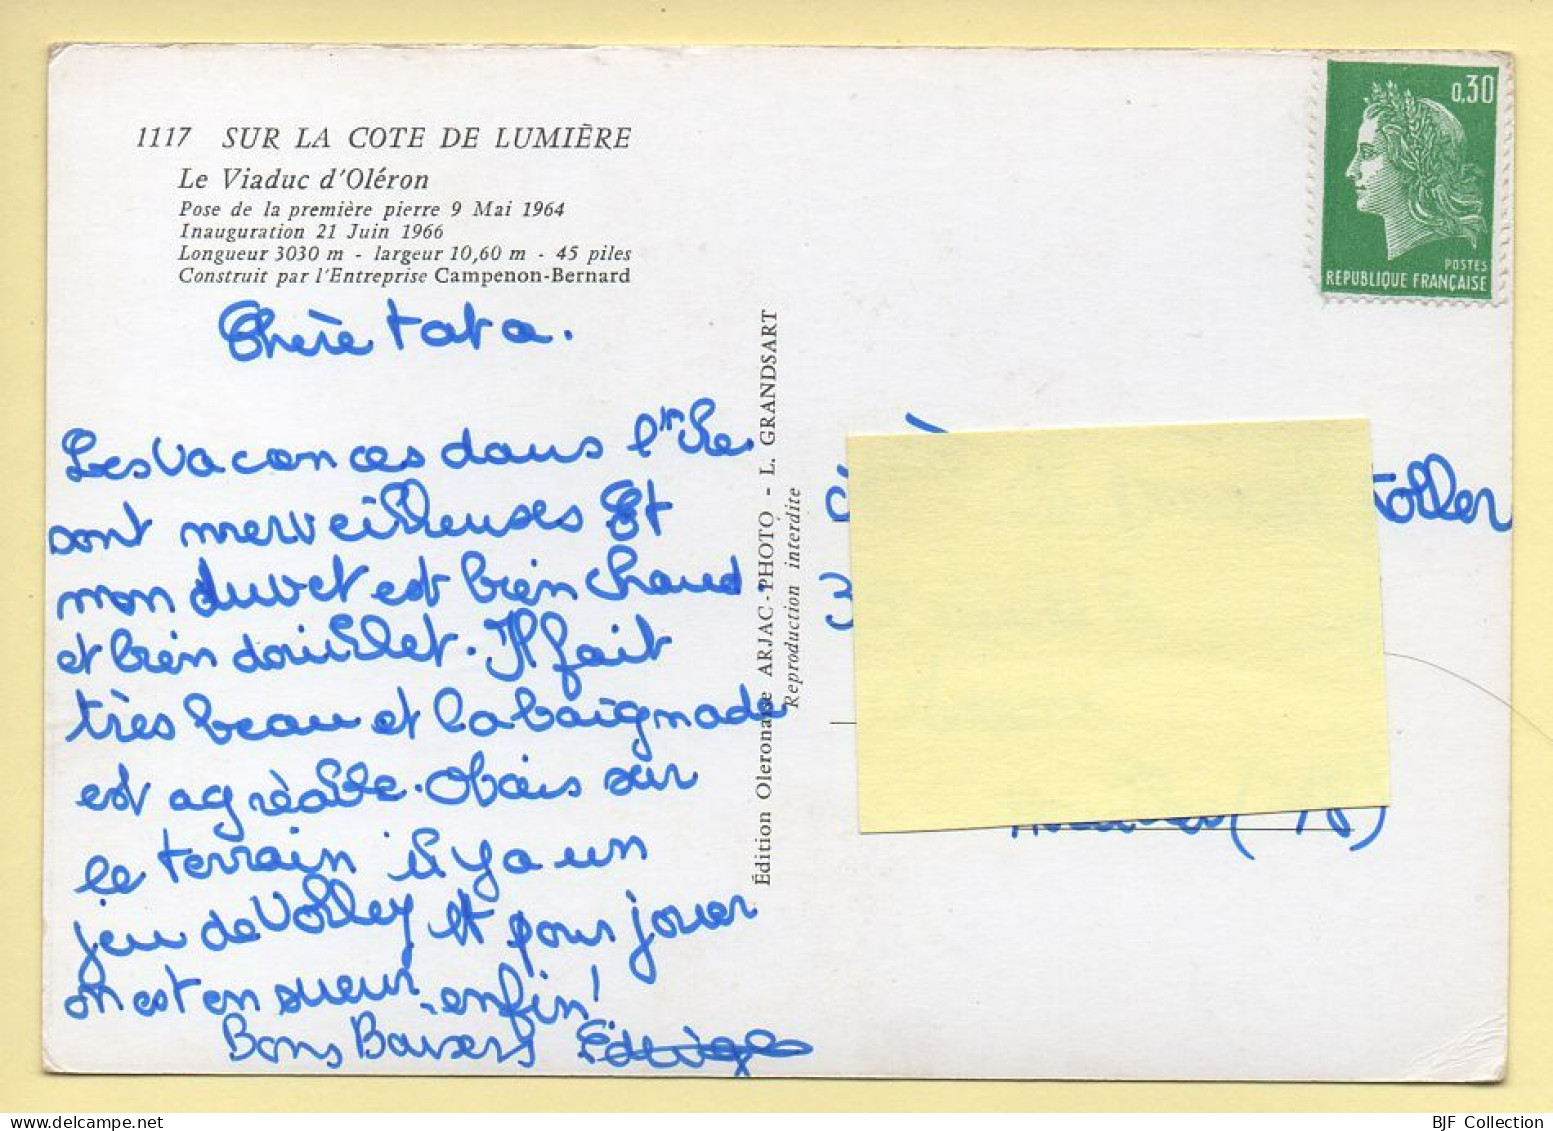 1117 SUR LA COTE DE LUMIÈRE
Le Viaduc d'Oléron
Pose de la première pierre 9 Mai 1964
Inauguration 21 Juin 1966
Longueur 3030 m - largeur 10,60 m - 45 piles
Construit par l'Entreprise Campenon-Bernard
Chère tata.
Les vacances dans l'
sont merveilleuses Et
mon duvet est bien chaud.
et bien douillet. Il fait
très beau et la baignade
est agréable. Mais sur
le terrain il y a un
jeu de Volley et pour jouer
on est en sueur enfin!
Bons Baisers Edwige
Édition Oleronaise ARJAC-PHOTO - L. GRANDSART
Reproduction interdite
0,30
POSTES
REPUBLIQUE FRANÇAISE
BJF Collection